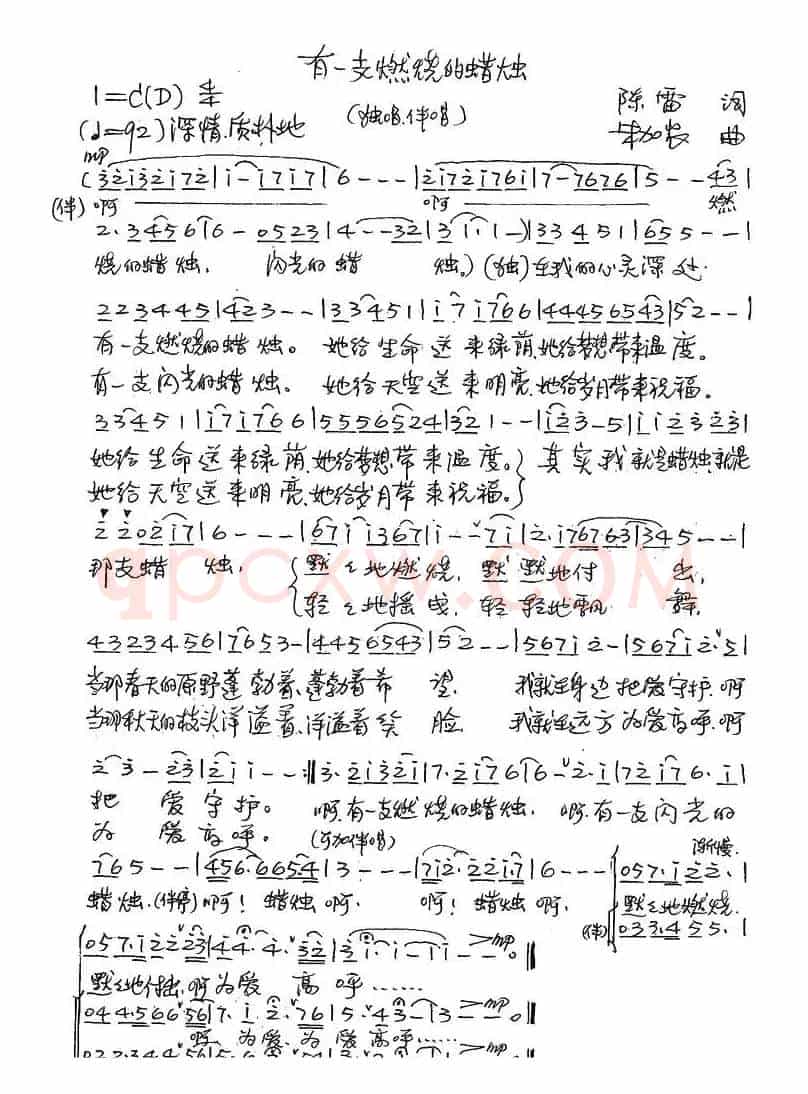 有一支燃烧的蜡烛
1=C(D)
(独唱.伴唱)
陈雷 词
(♩=92)深情.质朴地
曲
mp
(3̇2̇1̇3̇2̇1̇72̇|1̇-1̇71̇7|6---|2̇1̇72̇1̇761̇|7-7676|5--43|
(伴) 啊 啊 燃
2.34566-0523|4--32|31.1-)|33451|655--|
烧的蜡烛, 闪光的蜡 烛。)(独)在我的心灵深处.
2234451|423--|33451|1̇71̇766|44456543|52--|
有一支燃烧的蜡烛。 她给生命送来绿荫,她给梦想带来温度。
有一支闪光的蜡烛。 她给天空送来明亮,她给岁月带来祝福。
334511|1̇71̇766|5556524|321--|1̇2̇3̇-5|1̇1̇2̇3̇2̇3̇|
她给生命送来绿荫,她给梦想带来温度。} 其实我就是蜡烛,就是
她给天空送来明亮,她给岁月带来祝福。}
2̇2̇02̇1̇7|6---|671̇1̇367|1̇--71̇|2̇.1̇76763|345--|
那支蜡 烛, {默々地燃烧, 默默地付 出,
{轻々地摇曳, 轻轻地飘 舞.
43234.56|7653-|4456543|52--|5671̇2̇-|5671̇2̇.5|
当那春天的原野蓬勃着,蓬勃着希 望, 我就在身边把爱守护.啊
当那秋天的枝头洋溢着,洋溢着笑 脸, 我就在远方为爱高呼.啊
2̇3̇-2̇3̇|2̇1̇1̇--:‖3̇.2̇1̇3̇2̇1̇|7.2̇1̇766-2̇.1̇|72̇1̇76.1̇|
把 爱守护。 啊,有一支燃烧的蜡烛, 啊,有一支闪光的
为 爱高呼。 (可加伴唱)
渐慢
765--|456.6654|3---|71̇2̇.2̇2̇1̇7|6---|057.1̇2̇2̇.1̇|
蜡烛.(伴)啊! 蜡烛啊, 啊! 蜡烛啊, 默々地燃烧.
(伴) 033.455.|
057.1̇2̇2̇2̇3̇|4̇4̇.4̇.3̇2̇|3̇1̇.1̇-1̇1̇--mp0‖
默々地付出,啊为爱 高 呼……
044.56656|7.1̇.2̇.76|5.43-3--mp0‖
啊, 为爱.为爱高呼……
mp